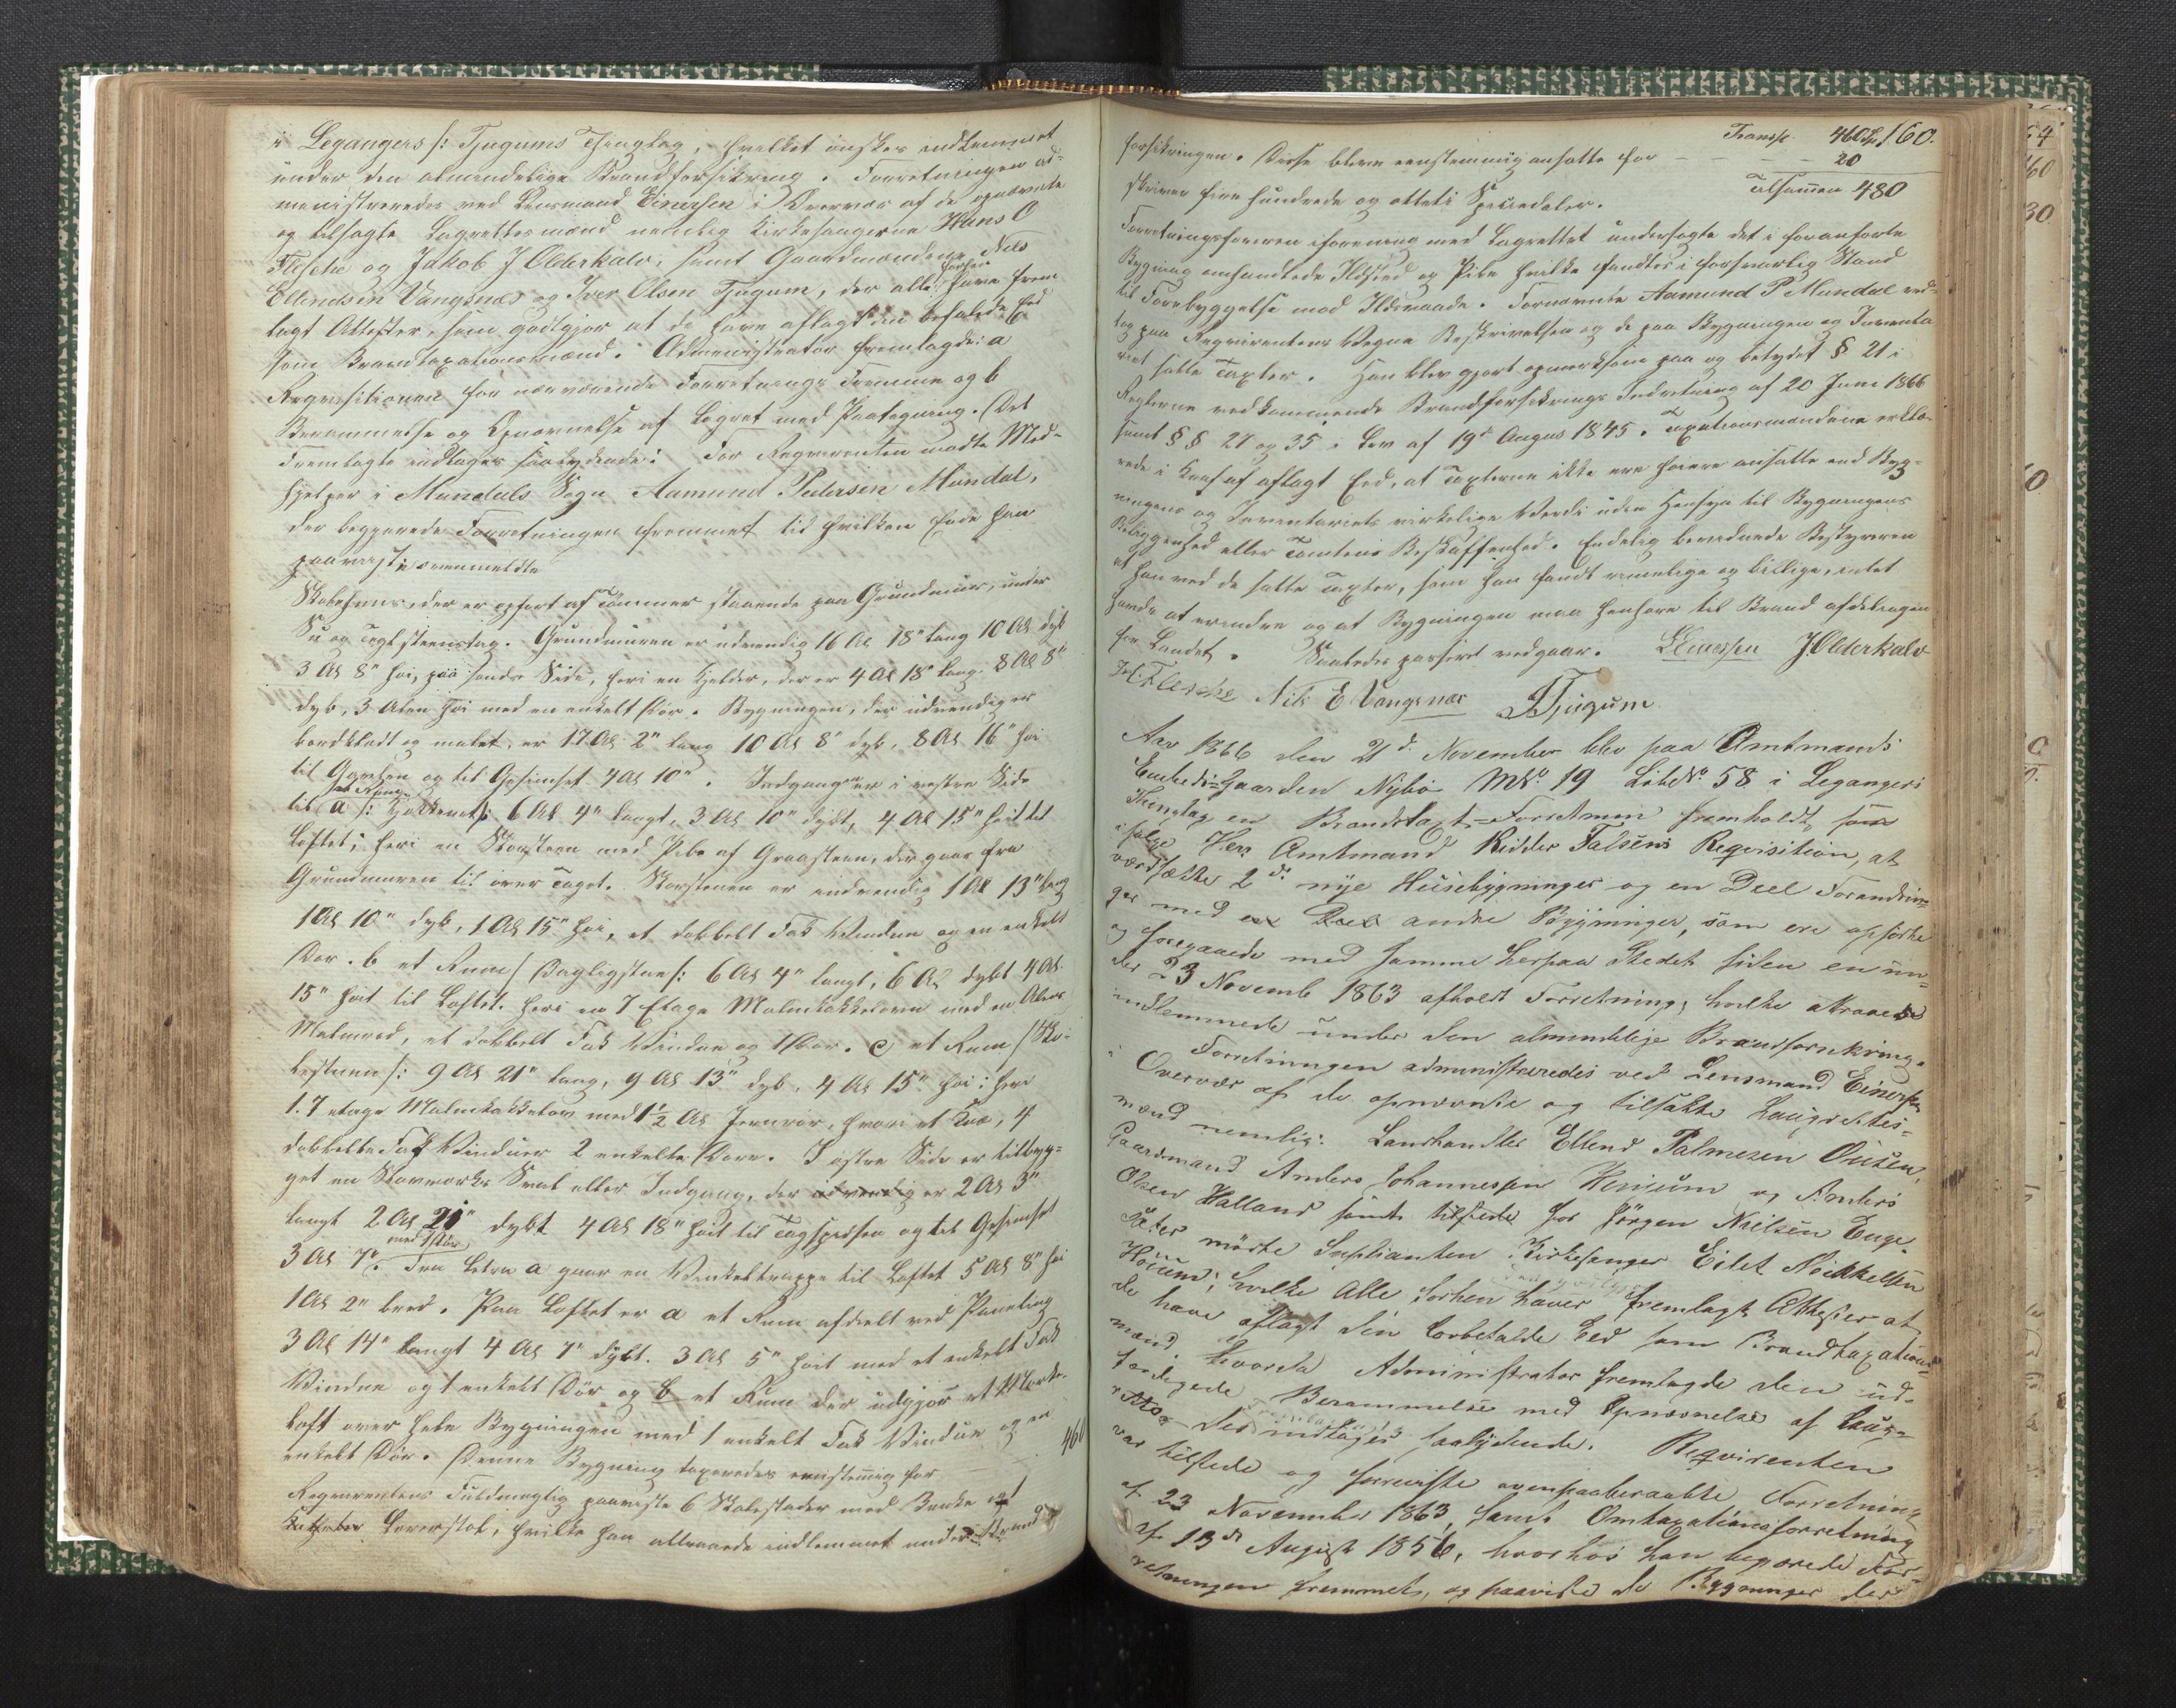 i Legangers /: Tjugums Thinglag, hvilket ønskes indlemmet
under den almindelige Brandforsikring. Forretningen ad=
ministreredes ved Lensmand Einersen i Overvær af de opnævnte
og tilsagte Lagrettesmænd nemlig Kirkesangerne Hans O
Flesche og Jakob J Olderkalv, samt Gaardmændene Nils
Ellendsen Vangsnæs og Iver Olsen Tjugum, der alle forhen have frem
lagt Attester, som godtgjør at de have aflagt den befalede Eed
som Brandtaxationsmænd. Administrator fremlagde: a
Reqvisitionen for nærværende Forretnings Fremme og b
Berammelse og Opnævnelse af Lagret med Paategning. Det
Fremlagte indtages saalydende: For Reqvirenten mødte Med=
hjelper i Mundals Sogn Aamund Pedersen Mundal,
der begjærede Forretningen fremmet til hvilken Ende han
paaviste ovenmeldte
Skolehuus, der er opført af Tømmer staaende paa Grundmuur, under
Su og Teglsteenstag. Grundmuren er udvendig 16 Al 18" lang 10 Al dyb
3 Al 8" høi, paa søndre Side, heri en Kjelder, der er 4 Al 18" lang 8 Al 8"
dyb, 3 Alen høi med en enkelt Dør. Bygningen, der udvendig er
bordklædt og malet, er 17 Al 2" lang 10 Al 8" dyb, 8 Al 16" høi
til Gavelen og til Gesimset 4 Al 10". Indgangen er i vestre Side
til a et Rum /: Kjøkkenet :/ 6 Al 4" langt, 3 Al 10" dybt, 4 Al 15" høit til
Loftet; heri en Skorsteen med Pibe af Graasteen, der gaar fra
Grundmuren til over Taget. Skorstenen er indvendig 1 Al 13" lang
1 Al 10" dyb, 1 Al 15" høi, et dobbelt Fak Vindue og en enkelt
Dør. b et Rum /: Dagligstue /: 6 Al 4" langt, 6 Al dybt 4 Al
15" høit til Loftet. heri en 7 Etage Malmkakkelovn med en Alens
Malmrød, et dobbelt Fak Vindue og 1 Dør. c et Rum /: Sko=
lestuen /: 9 Al 21" lang, 9 Al 13" dyb, 4 Al 15" høi: heri
1. 7 etage Malmkakkelov med 1 1/2 Al Jernrør, hvori et Knæ, 4
dobbelte Fak Vinduer 2 enkelte Døre. I østre Side er tilbyg=
get en Stavværks Sval eller Indgang, der udvendig er 2 Al 3"
langt 2 Al 21" dybt 4 Al 18" høit til Tagspidsen og til Gesimset
3 Al 7". med Dør Fra Letra a gaar en Vinkeltrappe til Loftet 5 Al 8" høi
1 Al 2" bred. Paa Loftet er a et Rum afdeelt ved Paneling
3 Al 14" langt 4 Al 7" dybt. 3 Al 5" høit med et enkelt Fak
Vindue og 1 enkelt Dør og b et Rum der udgjør et Mørke-
loft over hele Bygningen med 1 enkelt Fak Vindue og en
enkelt Dør. Denne Bygning taxeredes eenstemig for 460
Reqvirentens Fuldmægtig paaviste 6 Skolestader med Benke og
Katheder Lærerstol, hvilke han attraaede indlemmet under Brand

Transp. 460 160.
forsikringen. Disse bleve eenstemmig ansatte for - - - - 20
Tilsamen 480
skriver fire hundrede og otteti Speciedaler.
Forretningsføreren iforening med Lagrettet undersøgte det i foranførte
Bygning omhandlede Ildsted og Pibe hvilke fandtes i forsvarlig Stand
til Forebyggelse mod Ildsvaade. Fornævnte Aamund P Mundal ved=
tog paa Reqvirentens Vegne Beskrivelsen og de paa Bygningen og Inventa
riet satte Taxter. Han blev gjort opmærksom paa og betydet § 21 i
Reglerne vedkommende Brandforsikrings Indretning af 20 Juni 1866
samt §§ 21 og 35 i Lov af 19de August 1845. Taxationsmændene erklæ
rede i Kraft af aflagt Eed, at Taxterne ikke ere høiere ansatte end Byg=
ningens og Inventariets virkelige Værdi uden Hensyn til Bygningens
Beliggenhed eller Tomtens Beskaffenhed. Endelig bevidnede Bestyreren
at han ved de satte Taxter, som han fandt rimelige og billige, intet
havde at erindre og at Bygningen maa henføre til Brand afdelingen
for Landet. Saaledes passeret vedgaar. LEinersen J Olderkalv
H. Flesche Nils E Vangsnæs Tjugum
Aar 1866 den 21de November blev paa Amtmands
Embeds=Gaarden Nybø MNo. 19 LøbeNo. 58 i Legangers
Thinglag en Brandtaxt=Forretning fremholdt, som
ifølge Herr Amtmand Ridder Falsens Reqvisition, at
værdsætte 2de nye Huusebygninger og en Deel Forandrin=
ger med en Deel andre Bygninger, som ere opførte
og foregaaede med samme herpaa Stedet siden en un=
der 23 Novemb 1863 afholdt Forretning, hvilke attraaedes
indlemmede under den almindelige Brandforsikring.
Forretningen administreredes ved Lensmand Einersen
i Overvær af de opnævnte og tilsagte Laugrettes=
mænd nemlig: Landhandler Ellend Palmesen Ousen,
Gaardmand Anders Johannessen Henjum og Anders
Olsen Halland samt tilstede for Jørgen Nielsen Enge
sæter mødte Suplianten Kirkesanger Eilet Meikkelsen
Høium; hvilke Alle forhen haver fremlagt Attester at
de have aflagt den lovbefalde Eed som Brandtaxations
mænd. Hvorda Administrator fremlagde den ud-
færdigede Berammelse med Opnævnelse af Laug=
rettet der indtages saalydende. Reqvirenten
var tilstede og foreviste ovenpaaberaabte Forretning
af 23 November 1863, samt Omtaxationsforretning
af 13de August 1856, hvorhos han begærede For=
retningen fremmet, og paaviste de Bygninger der